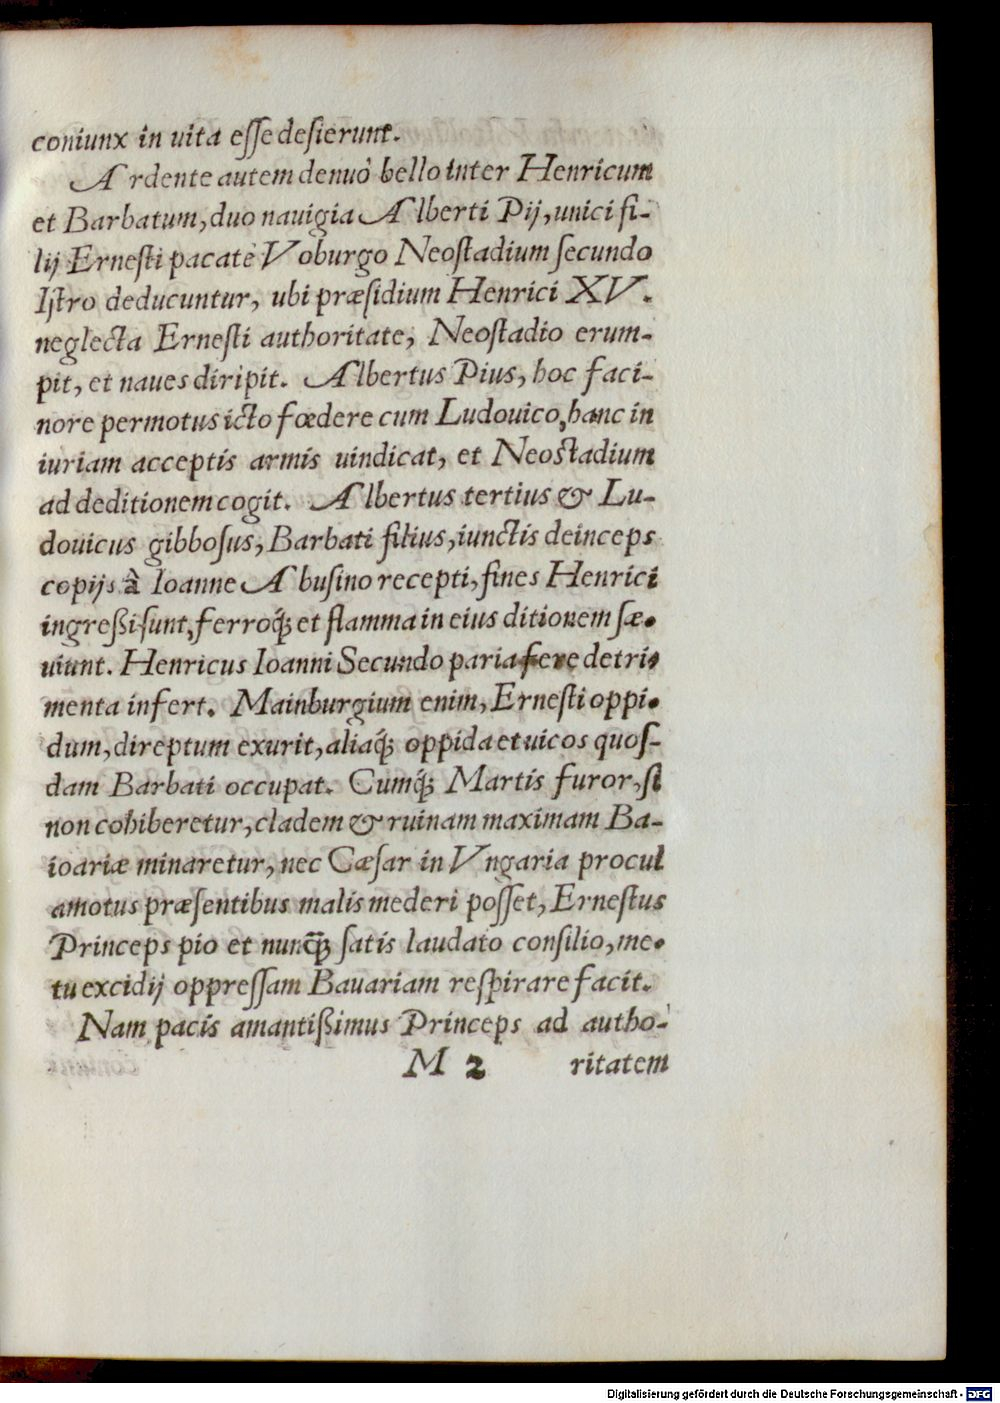 coniunx in uita eſſe deſierunt.
Ardente autem denuò bello inter Henricum
et Barbatum, duo nauigia Alberti Pij, unici fi-
lij Erneſti pacatè Voburgo Neoſtadium ſecundo
Iſtro deducuntur, ubi præſidium Henrici XV.
neglecta Erneſti authoritate, Neoſtadio erum-
pit, et naues diripit. Albertus Pius, hoc faci-
nore permotus icto fœdere cum Ludouico, hanc in
iuriam acceptis armis uindicat, et Neoſtadium
ad deditionem cogit. Albertus tertius & Lu-
douicus gibboſus, Barbati filius, iunctis deinceps
copijs à Ioanne Abuſino recepti, fines Henrici
ingreßi ſunt, ferroq́; et flamma in eius ditionem ſæ-
uiunt. Henricus Ioanni Secundo paria fere detri-
menta infert. Mainburgium enim, Erneſti oppi-
dum, direptum exurit, aliaq́; oppida et uicos quoſ-
dam Barbati occupat. Cumq́; Martis furor, ſi
non cohiberetur, cladem & ruinam maximam Ba-
ioariæ minaretur, nec Cæſar in Vngaria procul
amotus præſentibus malis mederi poſſet, Erneſtus
Princeps pio et nunq̃; ſatis laudato conſilio, me-
tu excidij oppreſſam Bauariam reſpirare facit.
Nam pacis amantißimus Princeps ad autho-
M 2 ritatem
Digitalisierung gefördert durch die Deutsche Forschungsgemeinschaft - DFG